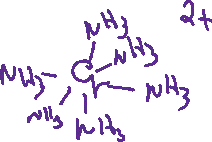 NH3 2+
NH3
NH3 Cr NH3
NH3 NH3